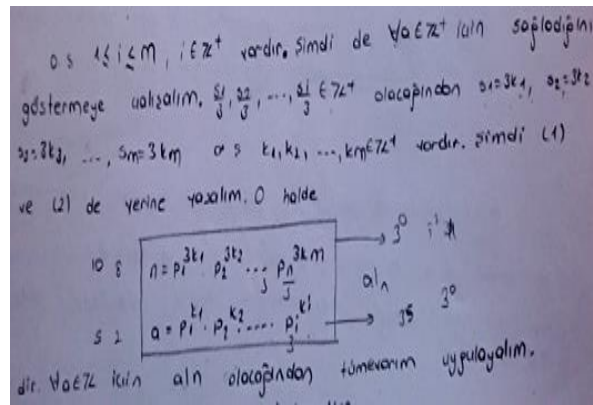 o.ş 1≤i≤m, i∈Z⁺ vardır. Şimdi de ∀a∈Z⁺ için sağladığını
göstermeye çalışalım. s1/3, s2/3, ..., si/3 ∈ Z⁺ olacağından s1=3k1, s2=3k2
s3=3k3, ..., sm=3km o ş k1,k2,...,km∈Z⁺ vardır. Şimdi (1)
ve (2) de yerine yazalım. O halde
10 8 n = p1^3k1 . p2^3k2 ... pn^3km → 3⁰
a|n
5 2 a = p1^k1 . p2^k2 ..... pi^ki → 3⁵ 3⁰
dir. ∀a∈Z için a|n olacağından tümevarım uygulayalım.